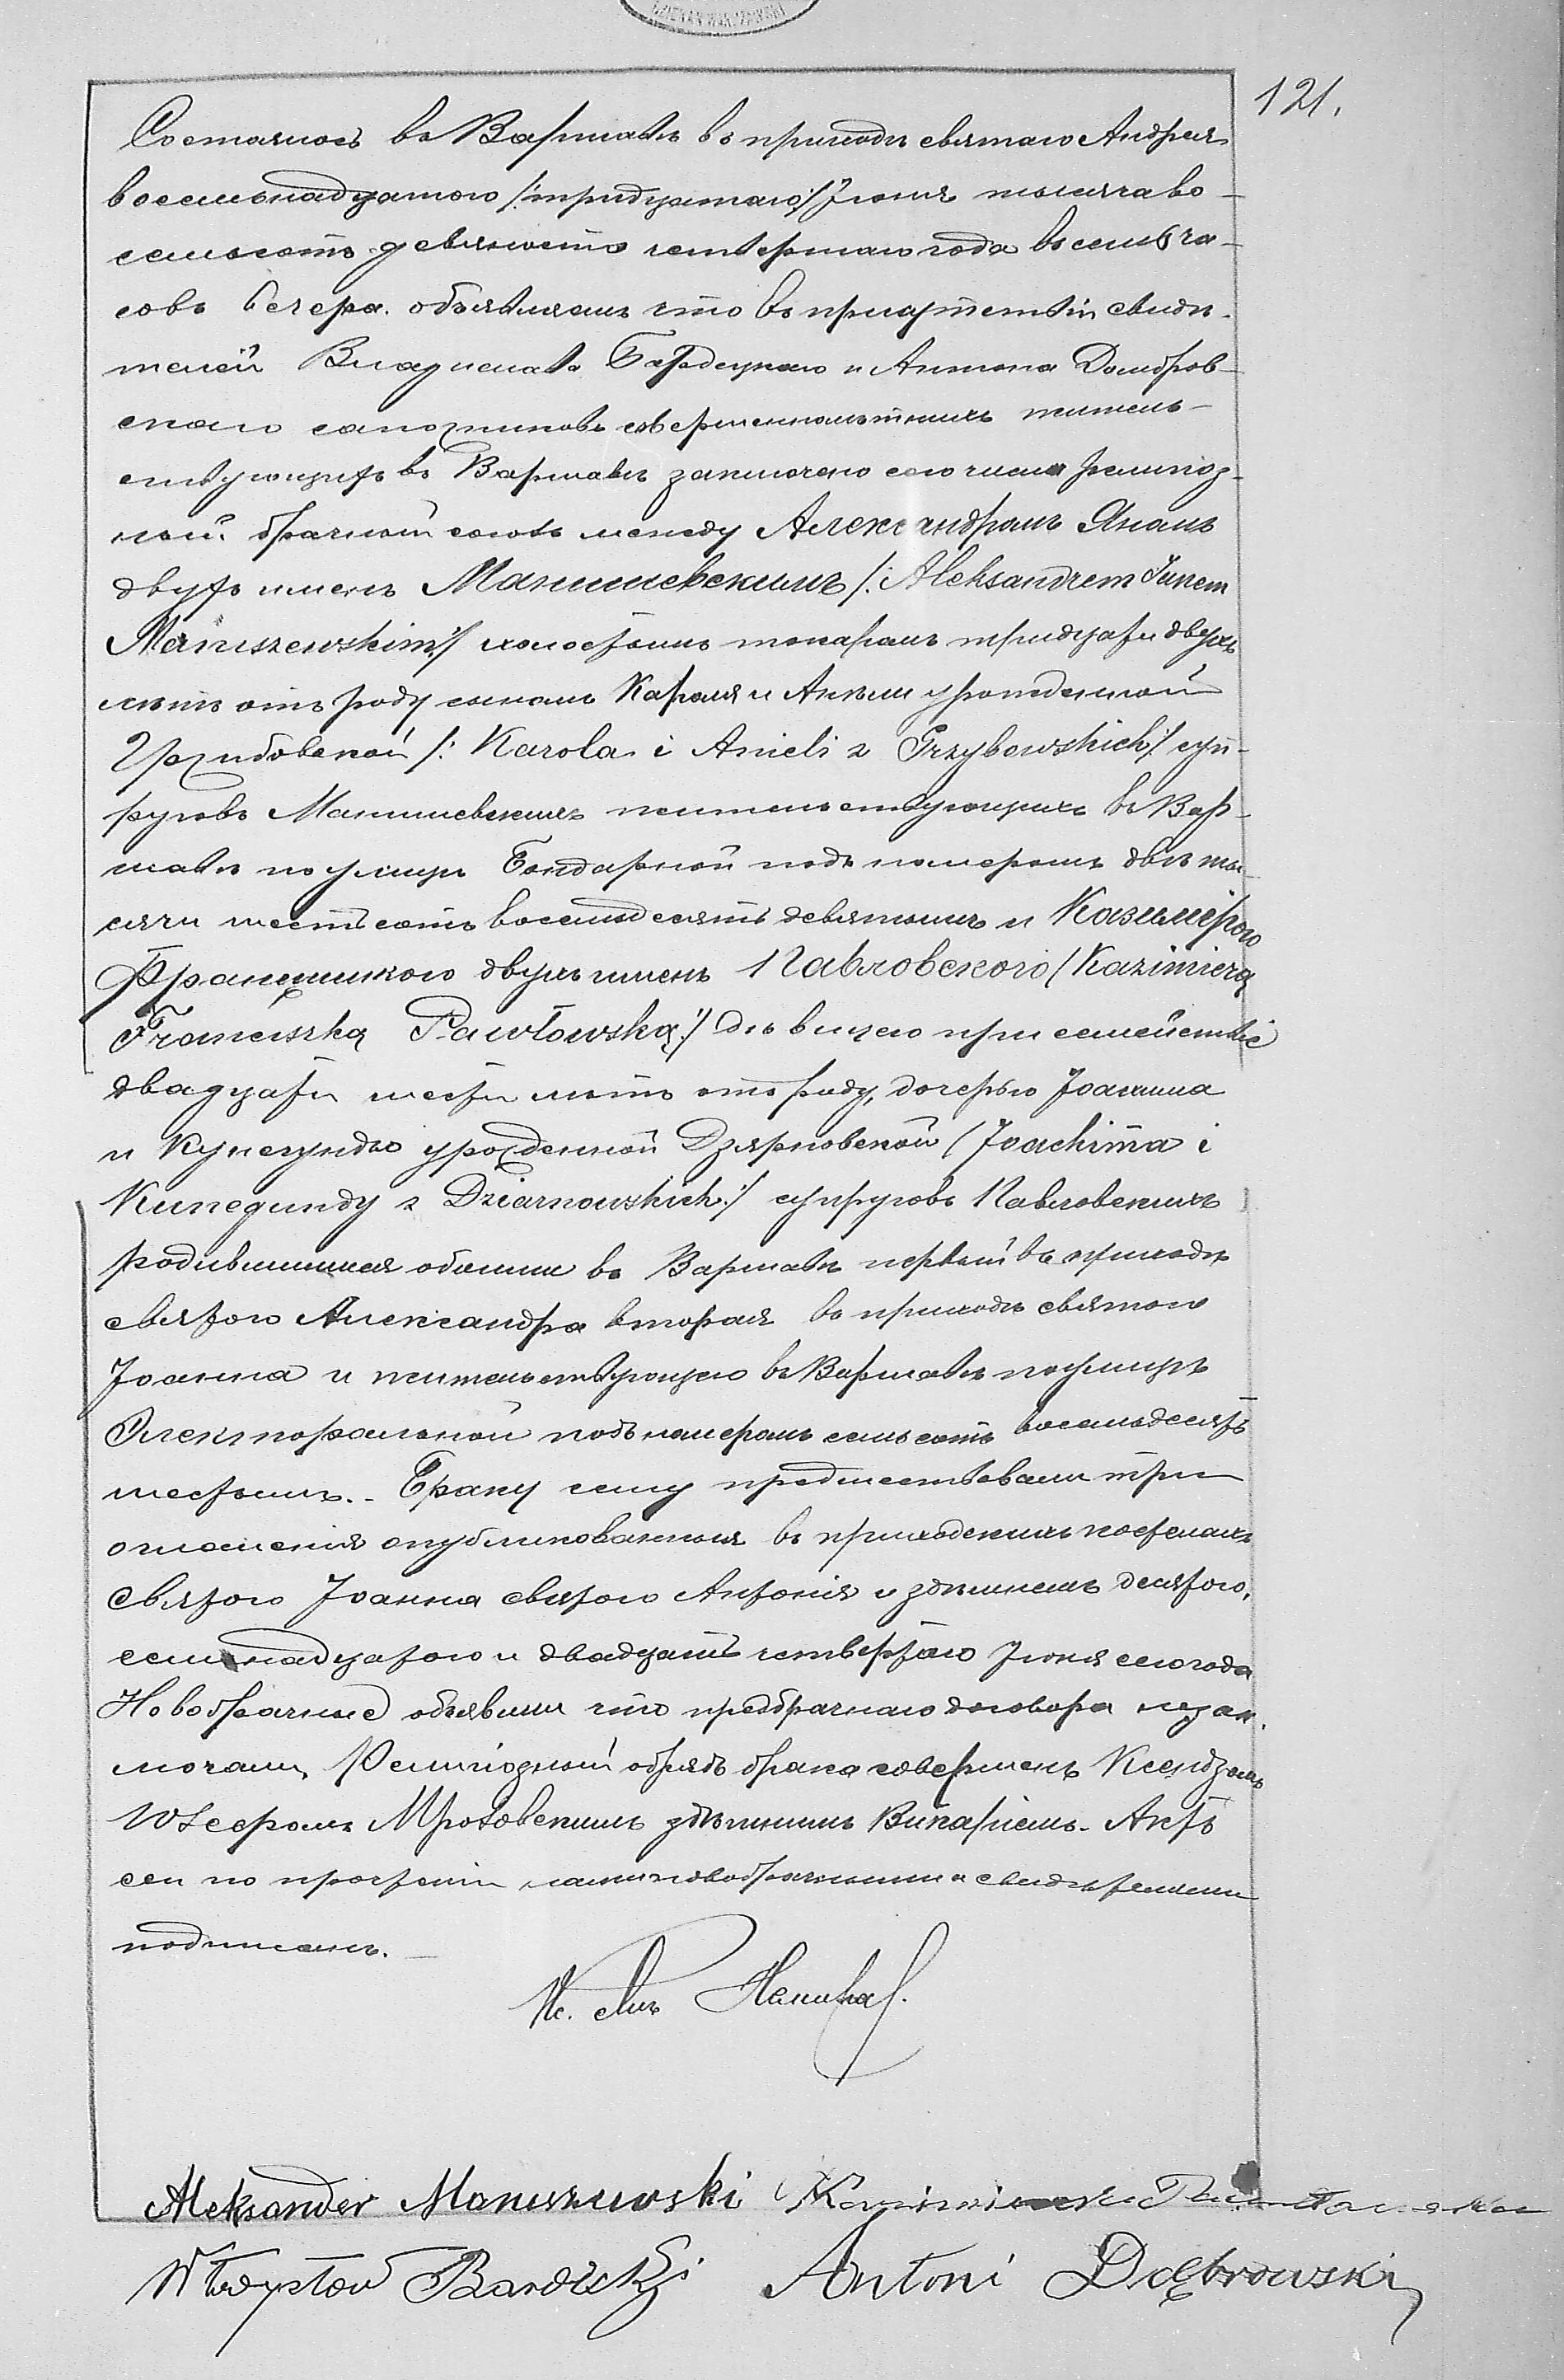 121.
Состоялось въ Варшавѣ въ приходѣ святаго Андрея
восемьнадцатаго /:тридцатаго:/ Іюня тысяча во-
семьсотъ девяносто четвертаго года въ семь ча-
совъ вечера. объявляемъ что въ присутствіи свидѣ-
телей Владислава Бардецкаго и Антона Домбров-
скаго сапожниковъ совершеннолѣтнихъ житель-
ствующихъ въ Варшавѣ заключено сего числа религіоз-
ный брачный союзъ между Александромъ Яномъ
двухъ именъ Манишевскимъ /: Aleksandrem Janem
Maniszewskim:/ холостымъ токаремъ тридцати двухъ
лѣтъ отъ роду сыномъ Кароля и Анели урожденной
Гржибовской /: Karola i Anieli z Grzybowskich:/ суп-
руговъ Манишевскихъ жительствующимъ въ Вар-
шавѣ по улицѣ Бондарной подъ номеромъ двѣ ты-
сячи шестьсотъ восемьдесятъ девятымъ и Казимірою
Францишкою двухъ именъ Павловскою /Kazimierą
Franciszką Pawłowską:/ дѣвицею при семействѣ
двадцати шести лѣтъ отъ роду, дочерью Іоахима
и Кунегунды урожденной Дзярновской (Joachima i
Kunegundy z Dziarnowskich:/ супруговъ Павловскихъ
родившимися обоими въ Варшавѣ первый въ приходѣ
святого Александра вторая въ приходѣ святого
Іоанна и жительствующею въ Варшавѣ по улицѣ
Электоральной подъ номеромъ семьсотъ восемьдесятъ
шестымъ. - Браку сему предшествовали три
оглашенія опубликованныя въ приходскихъ костелахъ
Святого Іоанна святого Антонія и здѣшнемъ десятого,
семнадцатого и двадцать четвертаго Іюня сего года
Новобрачные объявили что предбрачнаго договора незак-
лючали, Религіозный обрядъ брака совершенъ Ксендзомъ
Іосефомъ Мрозовскимъ здѣшнимъ Викаріемъ. Актъ
сей по прочтеніи нами новобрачными и свидѣтелями
подписанъ. -
Aleksander Maniszewski Kazimiera Pawłowska
Władysław Bardecki Antoni Dąbrowski